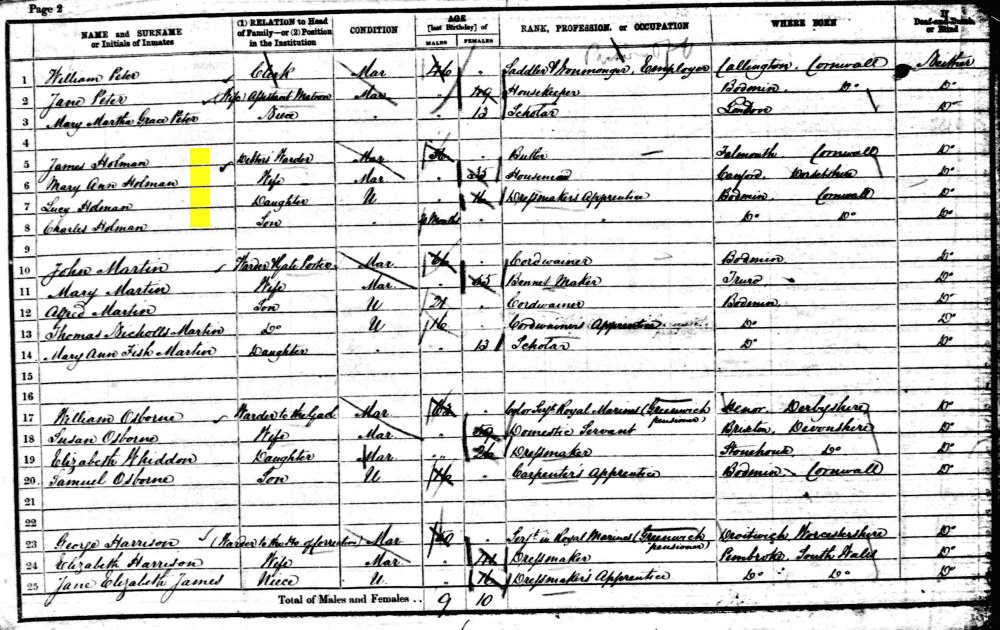 Page 2
NAME and SURNAME or Initials of Inmates (1) RELATION to Head of Family—or (2) Position in the Institution CONDITION AGE [last Birthday] of MALES FEMALES RANK, PROFESSION, or OCCUPATION WHERE BORN If Deaf-and-Dumb or Blind
1 William Peter Clerk Mar 46 Saddler & Ironmonger, Employer Callington, Cornwall Neither
2 Jane Peter Wife Assistant Matron Mar Housekeeper Bodmin Do Do
3 Mary Martha Grace Peter Niece 13 Scholar London Do
4
5 James Holman Debtors Warder Mar Butler Falmouth Cornwall Do
6 Mary Ann Holman Wife Mar Housemaid Do
7 Lucy Holman Daughter U 16 Dressmaker's Apprentice Bodmin Cornwall Do
8 Charles Holman Son Months Do Do Do
9
10 John Martin Warder & Gate Porter Mar Cordwainer Bodmin Do
11 Mary Martin Wife Mar Bonnet Maker Truro Do
12 Alfred Martin Son U 21 Cordwainer Bodmin Do
13 Thomas Nicholls Martin Do U 16 Cordwainer's Apprentice Do Do
14 Mary Ann Fish Martin Daughter 13 Scholar Do Do
15
16
17 William Osborne Warder to the Gaol Mar Color Serjt Royal Marines (Greenwich pensioner) Derbyshire Do
18 Susan Osborne Wife Mar Domestic Servant Brixton, Devonshire Do
19 Elizabeth Whiddon Daughter Mar 26 Dressmaker Stonehouse Do Do
20 Samuel Osborne Son U 16 Carpenter's Apprentice Bodmin Cornwall Do
21
22
23 George Harrison (Warder to the Ho of Correction) Mar Serjt in Royal Marines (Greenwich pensioner) Droitwich Worcestershire Do
24 Elizabeth Harrison Wife Mar Dressmaker Pembroke, South Wales Do
25 Jane Elizabeth James Niece U 16 Dressmaker's Apprentice Do Do Do
Total of Males and Females .. 9 10